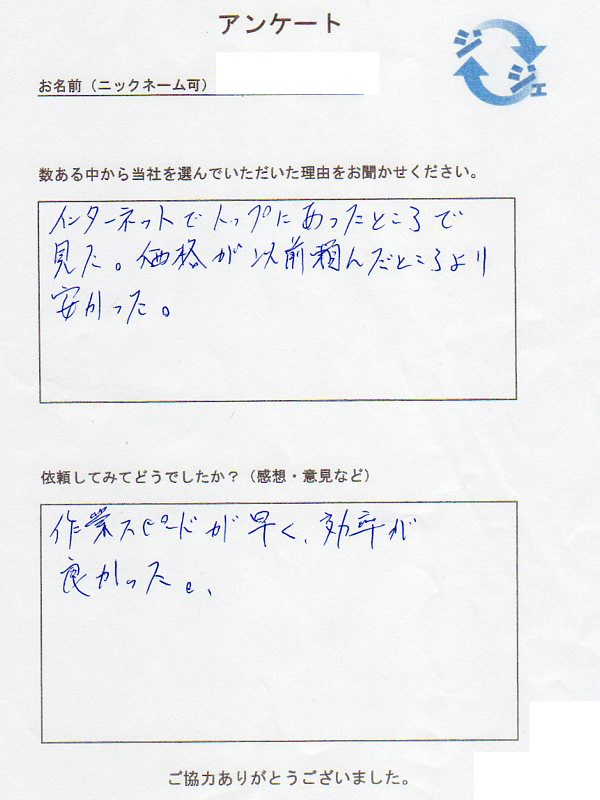 アンケート
ジ
ジェ
お名前（ニックネーム可）
数ある中から当社を選んでいただいた理由をお聞かせください。
インターネットでトップにあったところで
見た。価格が以前頼んだところより
安かった。
依頼してみてどうでしたか？（感想・意見など）
作業スピードが早く、効率が
良かった。
ご協力ありがとうございました。